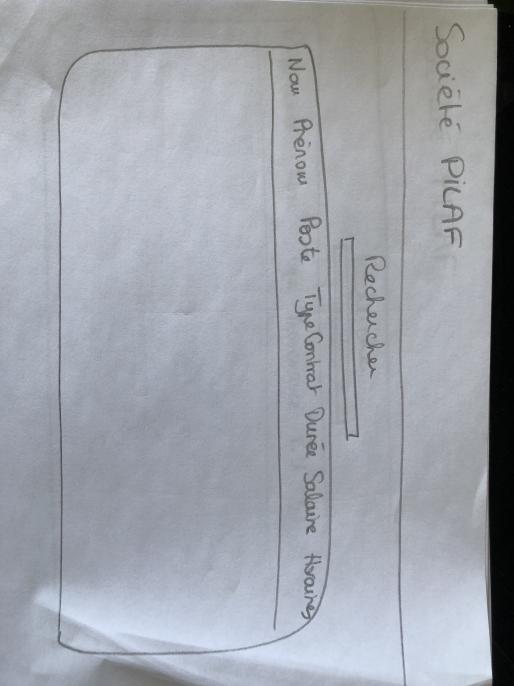 Société PILAF
Rechercher
Nom Prénom Poste TypeContrat Durée Salaire Horaires